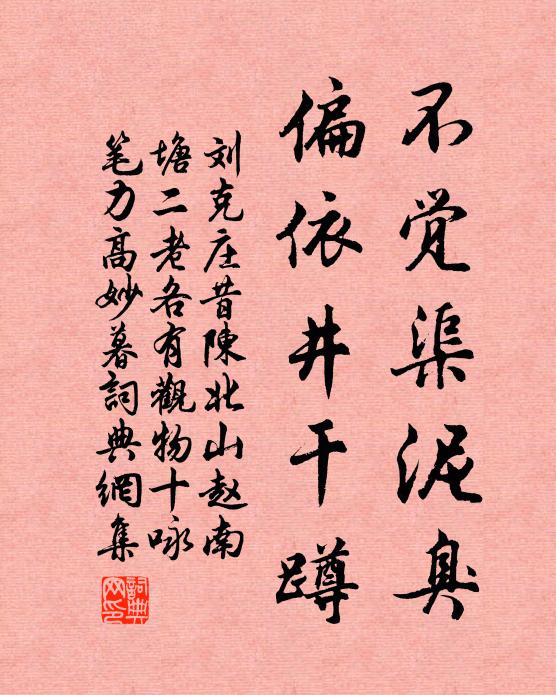 不觉渠泥臭
偏依井干蹲
刘克庄昔陳北山赵南
塘二老各有觀物十咏
笔力高妙暮詞典網集
詞典網印